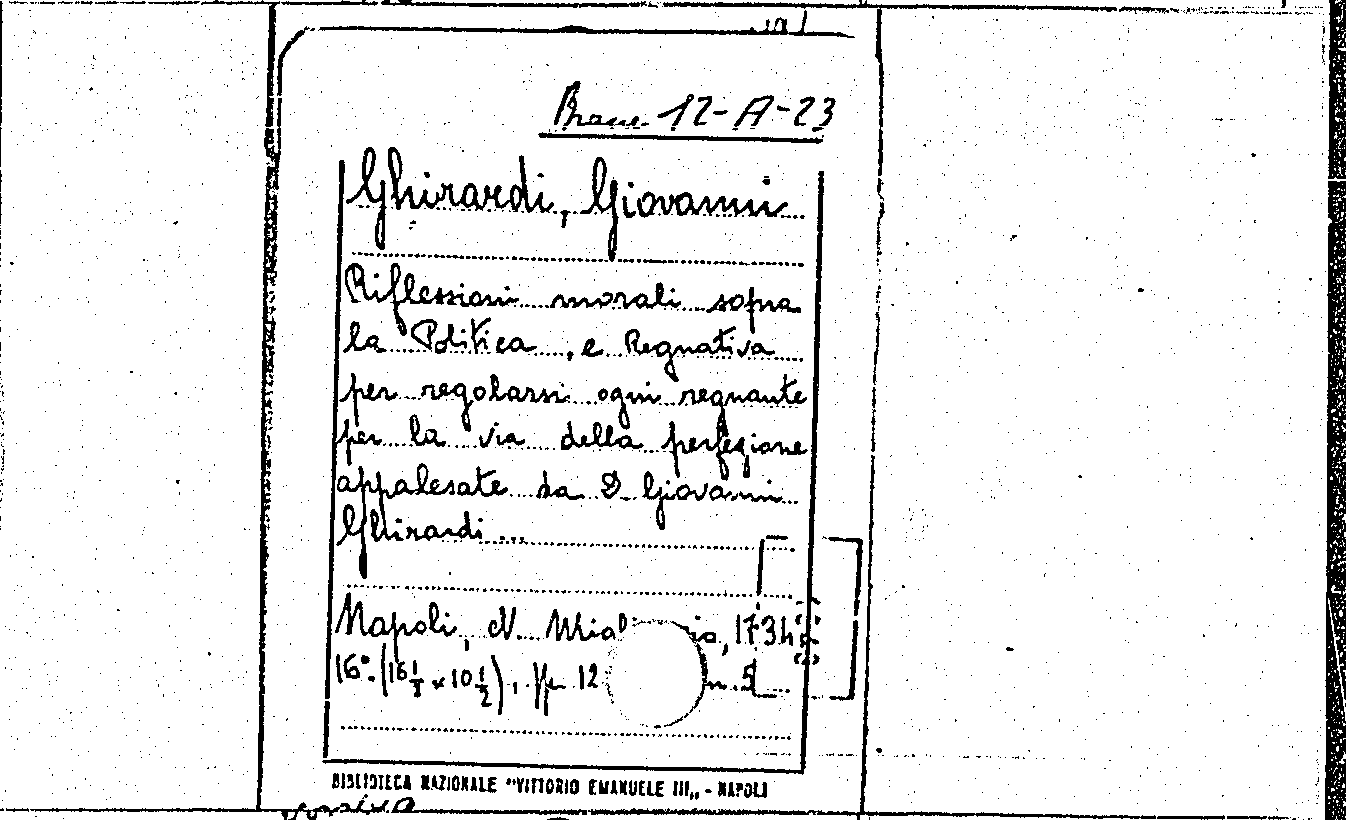 Branc. 12-A-23
Ghirardi, Giovanni
Riflessioni morali sopra
la Politica, e Regnativa
per regolarsi ogni regnante
per la via della perfezione
appalesate da D Giovanni
Ghirardi ...
Napoli, N. 173
16°. (16 1/2 x 10 1/2), pp 12
BIBLIOTECA NAZIONALE "VITTORIO EMANUELE III„ - NAPOLI